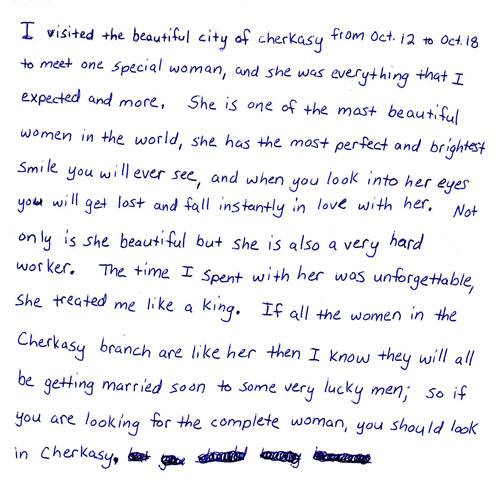 I visited the beautiful city of cherkasy from Oct. 12 to Oct. 18
to meet one special woman, and she was everything that I
expected and more. She is one of the most beautiful
women in the world, she has the most perfect and brightest
smile you will ever see, and when you look into her eyes
you will get lost and fall instantly in love with her. Not
only is she beautiful but she is also a very hard
worker. The time I spent with her was unforgettable,
she treated me like a king. If all the women in the
Cherkasy branch are like her then I know they will all
be getting married soon to some very lucky men; so if
you are looking for the complete woman, you should look
in Cherkasy.